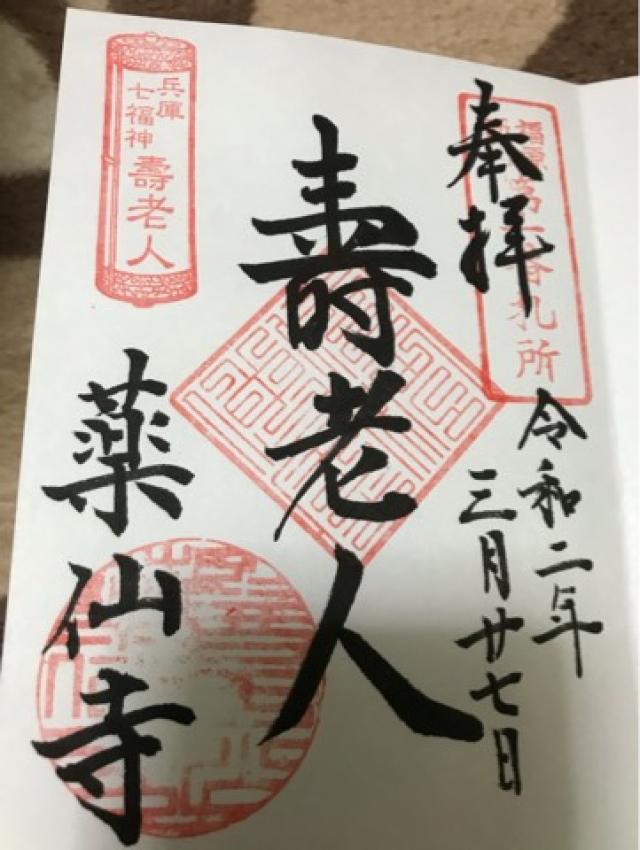 奉拝
福原 番札所
令和二年
三月廿七日
壽老人
兵庫
七福神
壽老人
薬仙寺